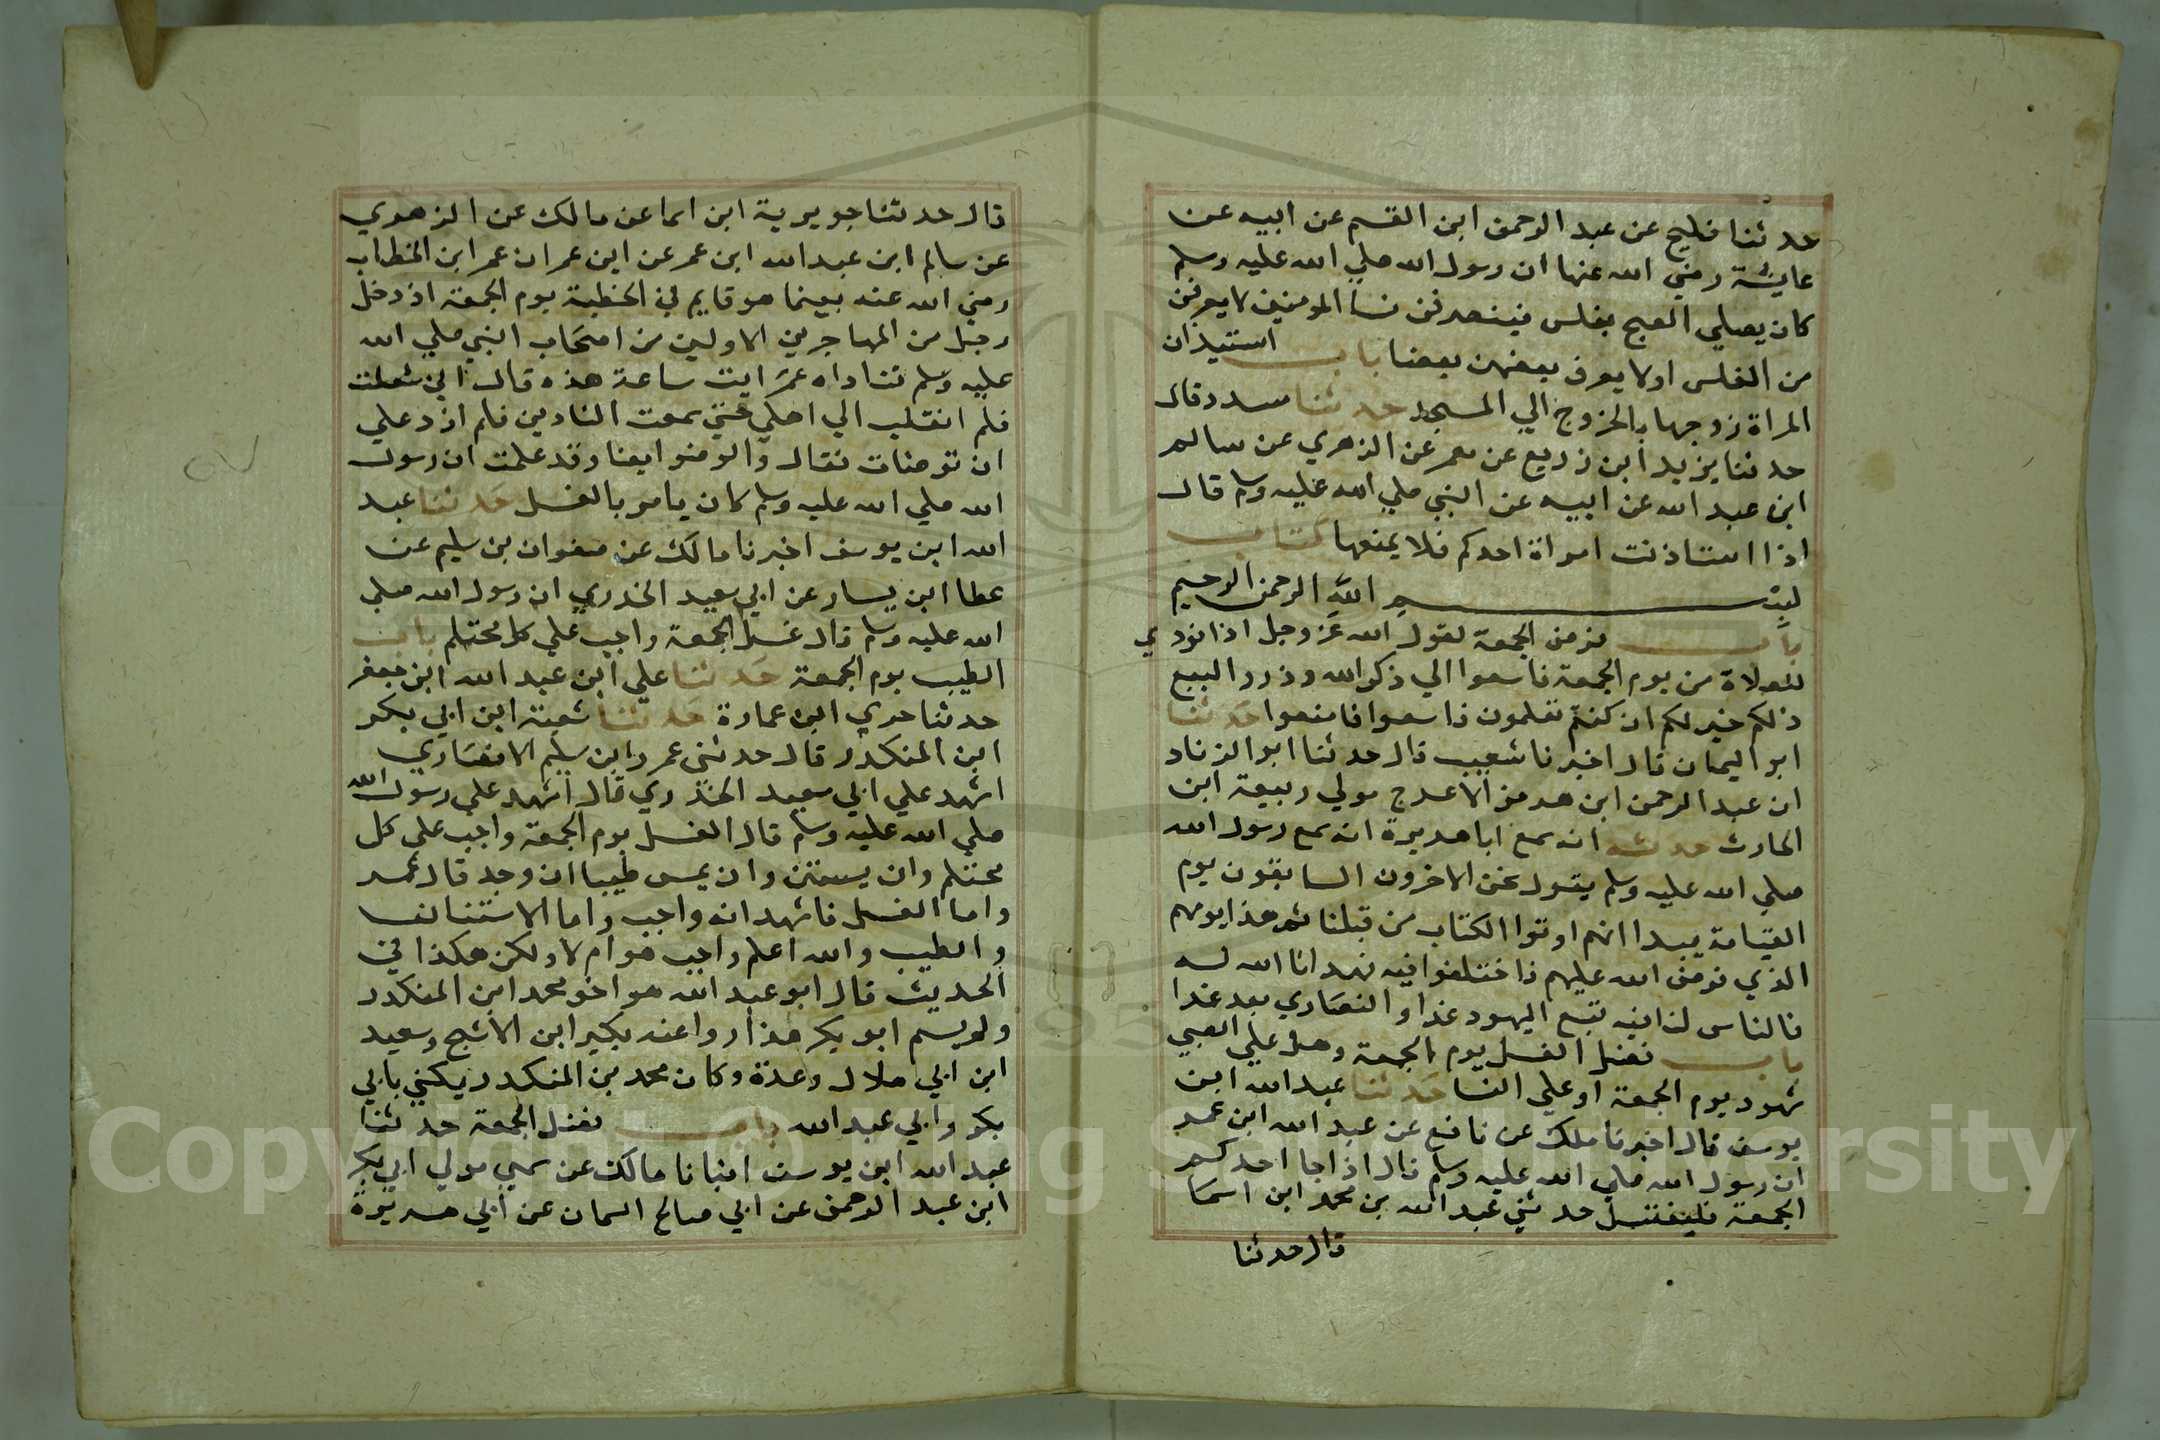 حدثنا فليح عن عبد الرحمن ابن القسم عن ابيه عن
عايشة رضي الله عنها ان رسول الله صلي الله عليه وسلم
كان يصلي الصبح بغلس فينصرفن نسا المومنين لا يعرفن
من الغلس اولا يعرف بعضهن بعضا باب استيذان
المراة زوجها بالخروج الي المسجد حدثنا مسدد قال
حدثنا يزيد ابن زريع عن معمر عن الزهري عن سالم
ابن عبد الله عن ابيه عن النبي صلي الله عليه وسلم قال
اذا استاذنت امراة احدكم فلا يمنعها كتاب
بسم الله الرحمن الرحيم
باب فرض الجمعة لقول الله عز وجل اذا نودي
للصلاة من يوم الجمعة فاسعوا الي ذكر الله وذروا البيع
ذلكم خير لكم ان كنتم تعلمون فاسعوا فامضوا حدثنا
ابو اليمان قال اخبرنا شعيب قال حدثنا ابو الزناد
ان عبد الرحمن ابن هرمز الاعرج مولي ربيعة ابن
الحارث حدثه انه سمع ابا هريرة انه سمع رسول الله
صلي الله عليه وسلم يقول نحن الاخرون السابقون يوم
القيامة بيدا انهم اوتوا الكتاب من قبلنا ثم هذا يومهم
الذي فرض الله عليهم فاختلفوا فيه فهدانا الله له
فالناس لنا فيه تبع اليهود غدا والنصاري بعد غدا
باب فضل الغسل يوم الجمعة وهل علي الصبي
شهود يوم الجمعة او علي النسا حدثنا عبد الله ابن
يوسف قال اخبرنا ملك عن نافع عن عبد الله ابن عمر
ان رسول الله صلي الله عليه وسلم قال اذا جا احدكم
الجمعة فليغتسل حدثني عبد الله بن محمد ابن اسما
قال حدثنا
قال حدثنا جويرية ابن اسما عن مالك عن الزهري
عن سالم ابن عبد الله ابن عمر عن ابن عمر ان عمر ابن الخطاب
رضي الله عنه بينما هو قايم في الخطبة يوم الجمعة اذ دخل
رجل من المهاجرين الاولين من اصحاب النبي صلي الله
عليه وسلم فناداه عمر ايت ساعة هذه قال اني شغلت
فلم انقلب الي اهلي حتي سمعت التاذين فلم ازد علي
ان توضات فقال والوضو ايضا وقد علمت ان رسول
الله صلي الله عليه وسلم كان يامر بالغسل حدثنا عبد
الله ابن يوسف اخبرنا مالك عن صفوان بن سليم عن
عطا ابن يسار عن ابي سعيد الخدري ان رسول الله صلي
الله عليه وسلم قال غسل الجمعة واجب علي كل محتلم باب
الطيب يوم الجمعة حدثنا علي ابن عبد الله ابن جعفر
حدثنا حرمي ابن عمارة حدثنا شعبة ابن ابي بكر
ابن المنكدر قال حدثني عمرو ابن سليم الانصاري
اشهد علي ابي سعيد الخدري قال اشهد علي رسول الله
صلي الله عليه وسلم قال الغسل يوم الجمعة واجب علي كل
محتلم وان يستن وان يمس طيبا ان وجد قال عمر
واما الغسل فاشهد انه واجب واما الاستنان
والطيب والله اعلم واجب هو ام لا ولكن هكذا في
الحديث قال ابو عبد الله هو اخو محمد ابن المنكدر
ولم يسم ابو بكر هذا رواعنه بكير ابن الاشج وسعيد
ابن ابي هلال وعدة وكان محمد بن المنكدر يكني بابي
بكر وابي عبد الله باب فضل الجمعة حدثنا
عبد الله ابن يوسف انبانا مالك عن سمي مولي ابي بكر
ابن عبد الرحمن عن ابي صالح السمان عن ابي هريرة
Copyright © King Saud University